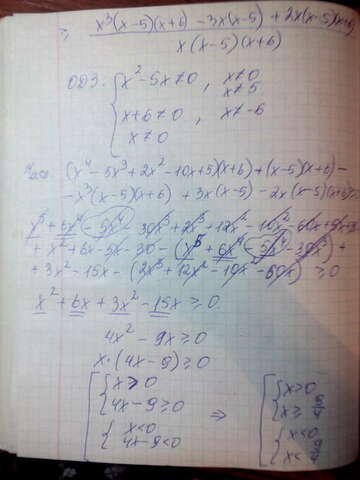 ≥ x³(x-5)(x+6) - 3x(x-5) + 2x(x-5)(x+6)
x(x-5)(x+6)
ОДЗ: { x²-5x≠0, x≠0
x≠5
x+6≠0, x≠-6
x≠0
(x⁴-5x³+2x²-10x+5)(x+6)+(x-5)(x+6)-
-x³(x-5)(x+6) +3x(x-5) -2x(x-5)(x+6)≥0
x⁵+6x⁴-5x⁴-30x³+2x³+12x²-10x²-60x+5x+30
+x²+6x-5x-30-(x⁵+6x⁴-5x⁴-30x³)+
+3x²-15x-(2x³+12x²-10x²-60x)≥0
x²+6x+3x²-15x≥0
4x²-9x≥0
x·(4x-9)≥0
[ { x>0
4x-9≥0
{ x<0
4x-9<0
⇒ [ { x>0
x≥ 9/4
{ x<0
x< 9/4